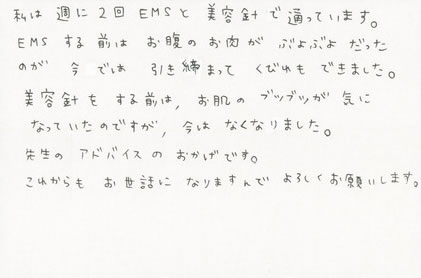 私は 週に 2回 EMSと 美容針で 通っています。
EMS する 前は お腹の お肉が ぶよぶよ だった
のが 今 では 引き 締まって くびれも できました。
美容針を する 前は, お肌の ブツブツが 気に
なって いた のですが, 今は なくなりました。
先生の アドバイスの おかげです。
これからも お世話に なりますんで よろしく お願いします。